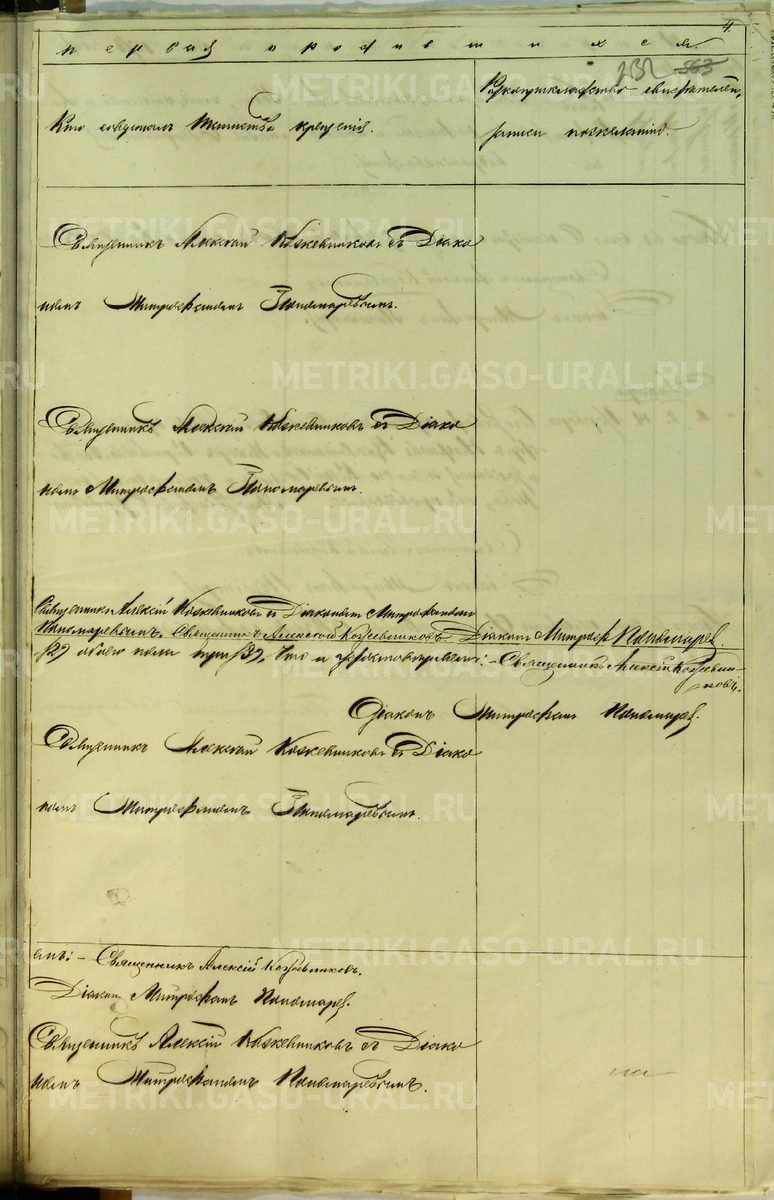 4.
первая о родившихся.
232 563
Кто совершалъ таинство крещенія.
Рукоприкладство свидѣтелей
записи по желанію.
Священникъ Алексій Кожевниковъ съ Діако
номъ Митрофаномъ Пономаревымъ.
Священникъ Алексій Кожевниковъ съ Діако
номъ Митрофаномъ Пономаревымъ.
Священникъ Алексій Кожевниковъ съ Діакономъ Митрофаномъ
Пономаревымъ. Священникъ Алексій Кожевниковъ Діаконъ Митроф Пономарев.
обоего пола три Священникъ Алексій Кожевни-
ковъ.
Діаконъ Митрофанъ Пономарев.
Священникъ Алексій Кожевниковъ съ Діако
номъ Митрофаномъ Пономаревымъ.
емъ: – Священникъ Алексій Кожевниковъ.
Діаконъ Митрофанъ Пономарев.
Священникъ Алексій Кожевниковъ съ Діако
номъ Митрофаномъ Пономаревымъ.
METRIKI.GASO-URAL.RU